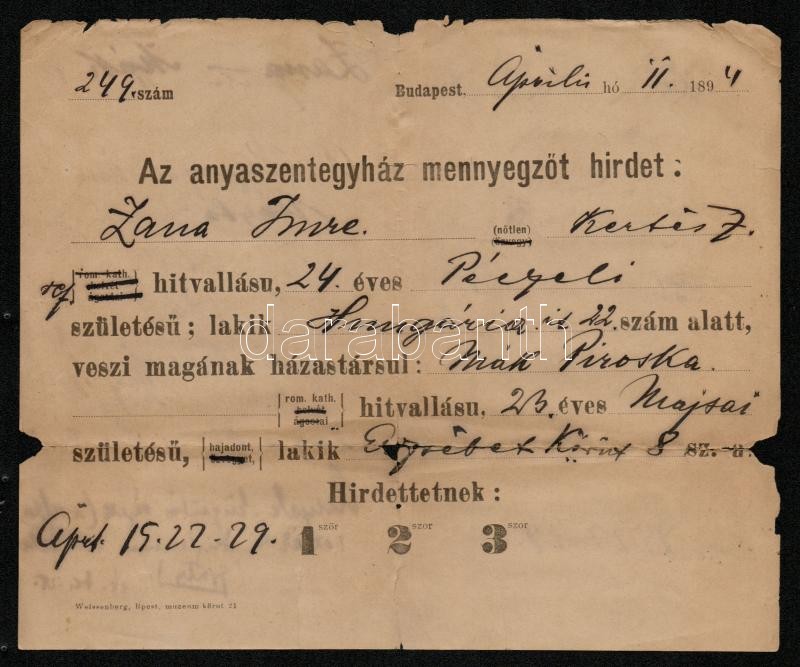 249. szám Budapest, Április hó 11. 1894
Az anyaszentegyház mennyegzőt hirdet:
Zana Imre. (nőtlen) Kertész.
(özvegy)
ref rom. kath. hitvallásu, 24. éves Péczeli
helvét
ágostai
születésű; lakik Hungária út 22. szám alatt,
darabanth
veszi magának házastársul: Mák Piroska.
rom. kath. hitvallásu, 23. éves Majsai
helvét
ágostai
születésű, hajadont, lakik Erzsébet Körút 8 sz. a.
özvegyet,
Hirdettetnek:
Ápr. 15.-22-29. 1 ször 2 szor 3 szor
Weissenberg, Bpest, muzeum körut 21